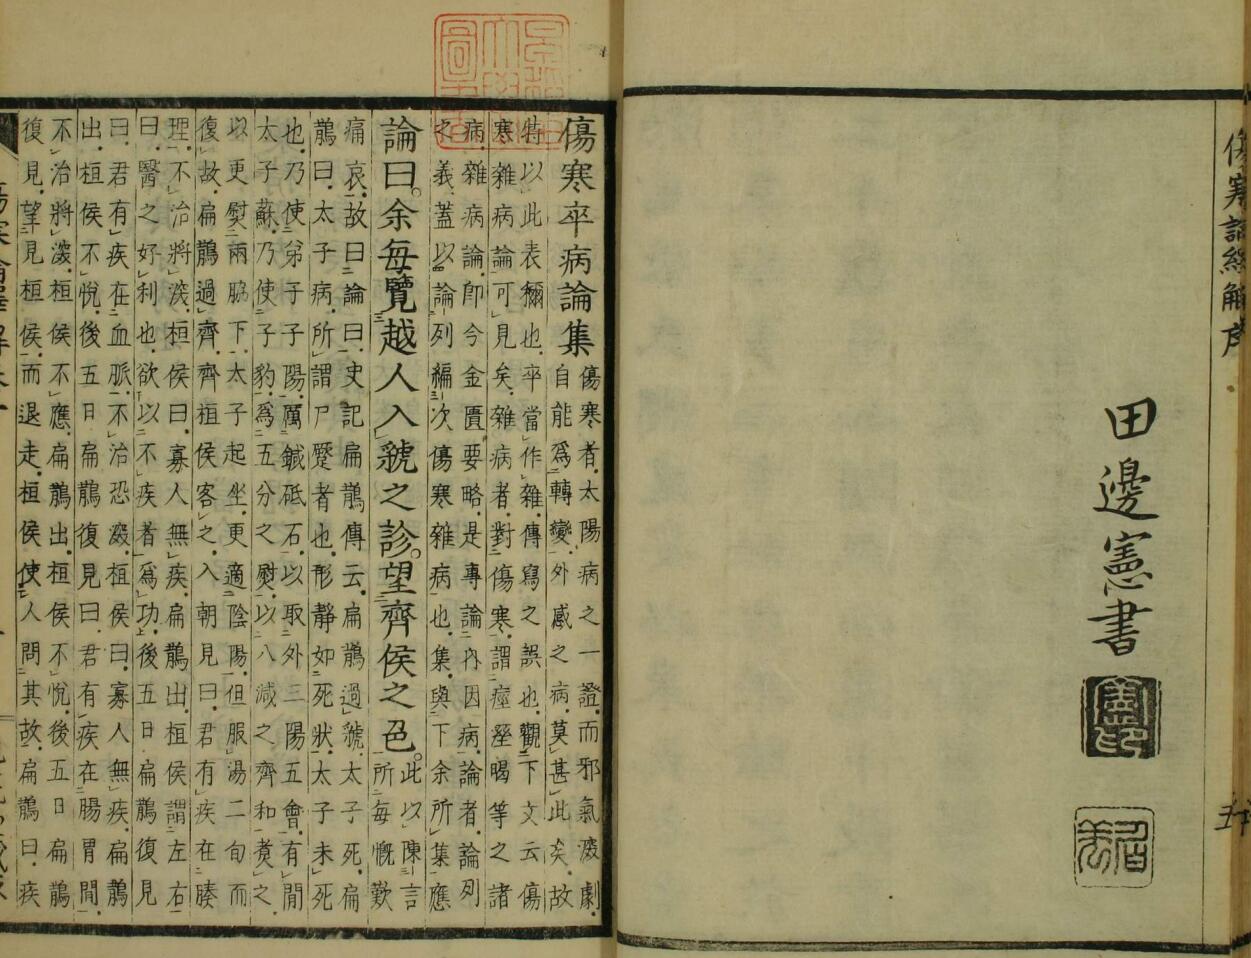 田邊憲書
傷寒卒病論集
傷寒者.太陽病之一證.而邪氣深劇.
自能爲轉變.外感之病.莫甚此矣.故
特以此表稱也.卒當作雜.傳寫之誤也.觀下文云傷
寒雜病論可見矣.雜病者.對傷寒.謂痙溼暍等之諸
病.雜病論.卽今金匱要略.是專論內因病.論者.論列
之義.蓋以論列編次傷寒雜病也.集與下余所集應
論曰.余每覽越人入虢之診.望齊侯之色.
此以陳言
所每慨歎
痛哀.故曰論曰.史記扁鵲傳云.扁鵲過虢.太子死.扁
鵲曰.太子病.所謂尸蹷者也.形靜如死狀.太子未死
也.乃使弟子子陽.厲鍼砥石.以取外三陽五會.有間
太子蘇.乃使子豹.爲五分之熨.以八減之齊和煑之.
以更熨兩脇下.太子起坐.更適陰陽.但服湯二旬而
復故.扁鵲過齊.齊桓侯客之.入朝見曰.君有疾在腠
理.不治將深.桓侯曰.寡人無疾.扁鵲出.桓侯謂左右
曰.醫之好利也.欲以不疾者爲功.後五日扁鵲復見
曰.君有疾在血脈.不治恐深.桓侯曰.寡人無疾.扁鵲
出.桓侯不悅.後五日扁鵲復見曰.君有疾在腸胃間.
不治將深.桓侯不應.扁鵲出.桓侯不悅.後五日扁鵲
復見.望見桓侯.而退走.桓侯使人問其故.扁鵲曰.疾